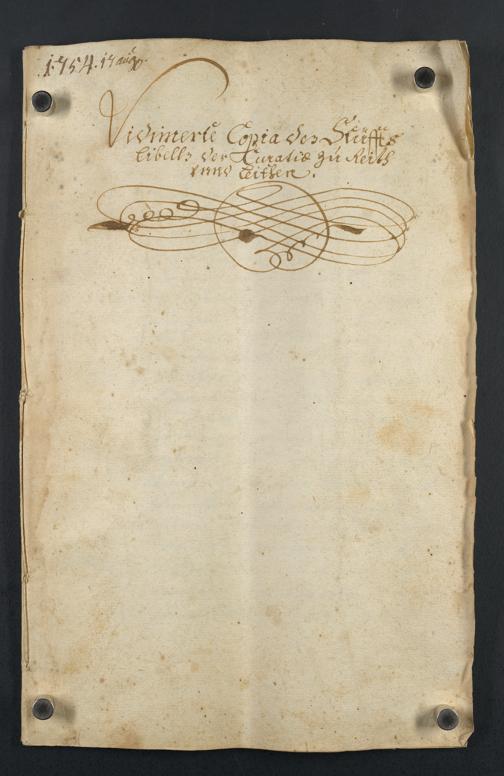 1754. 17 aug.
Vidimerte Copia des Stüffts
libells der Curatiæ zu Reith
vnnd Leithen.